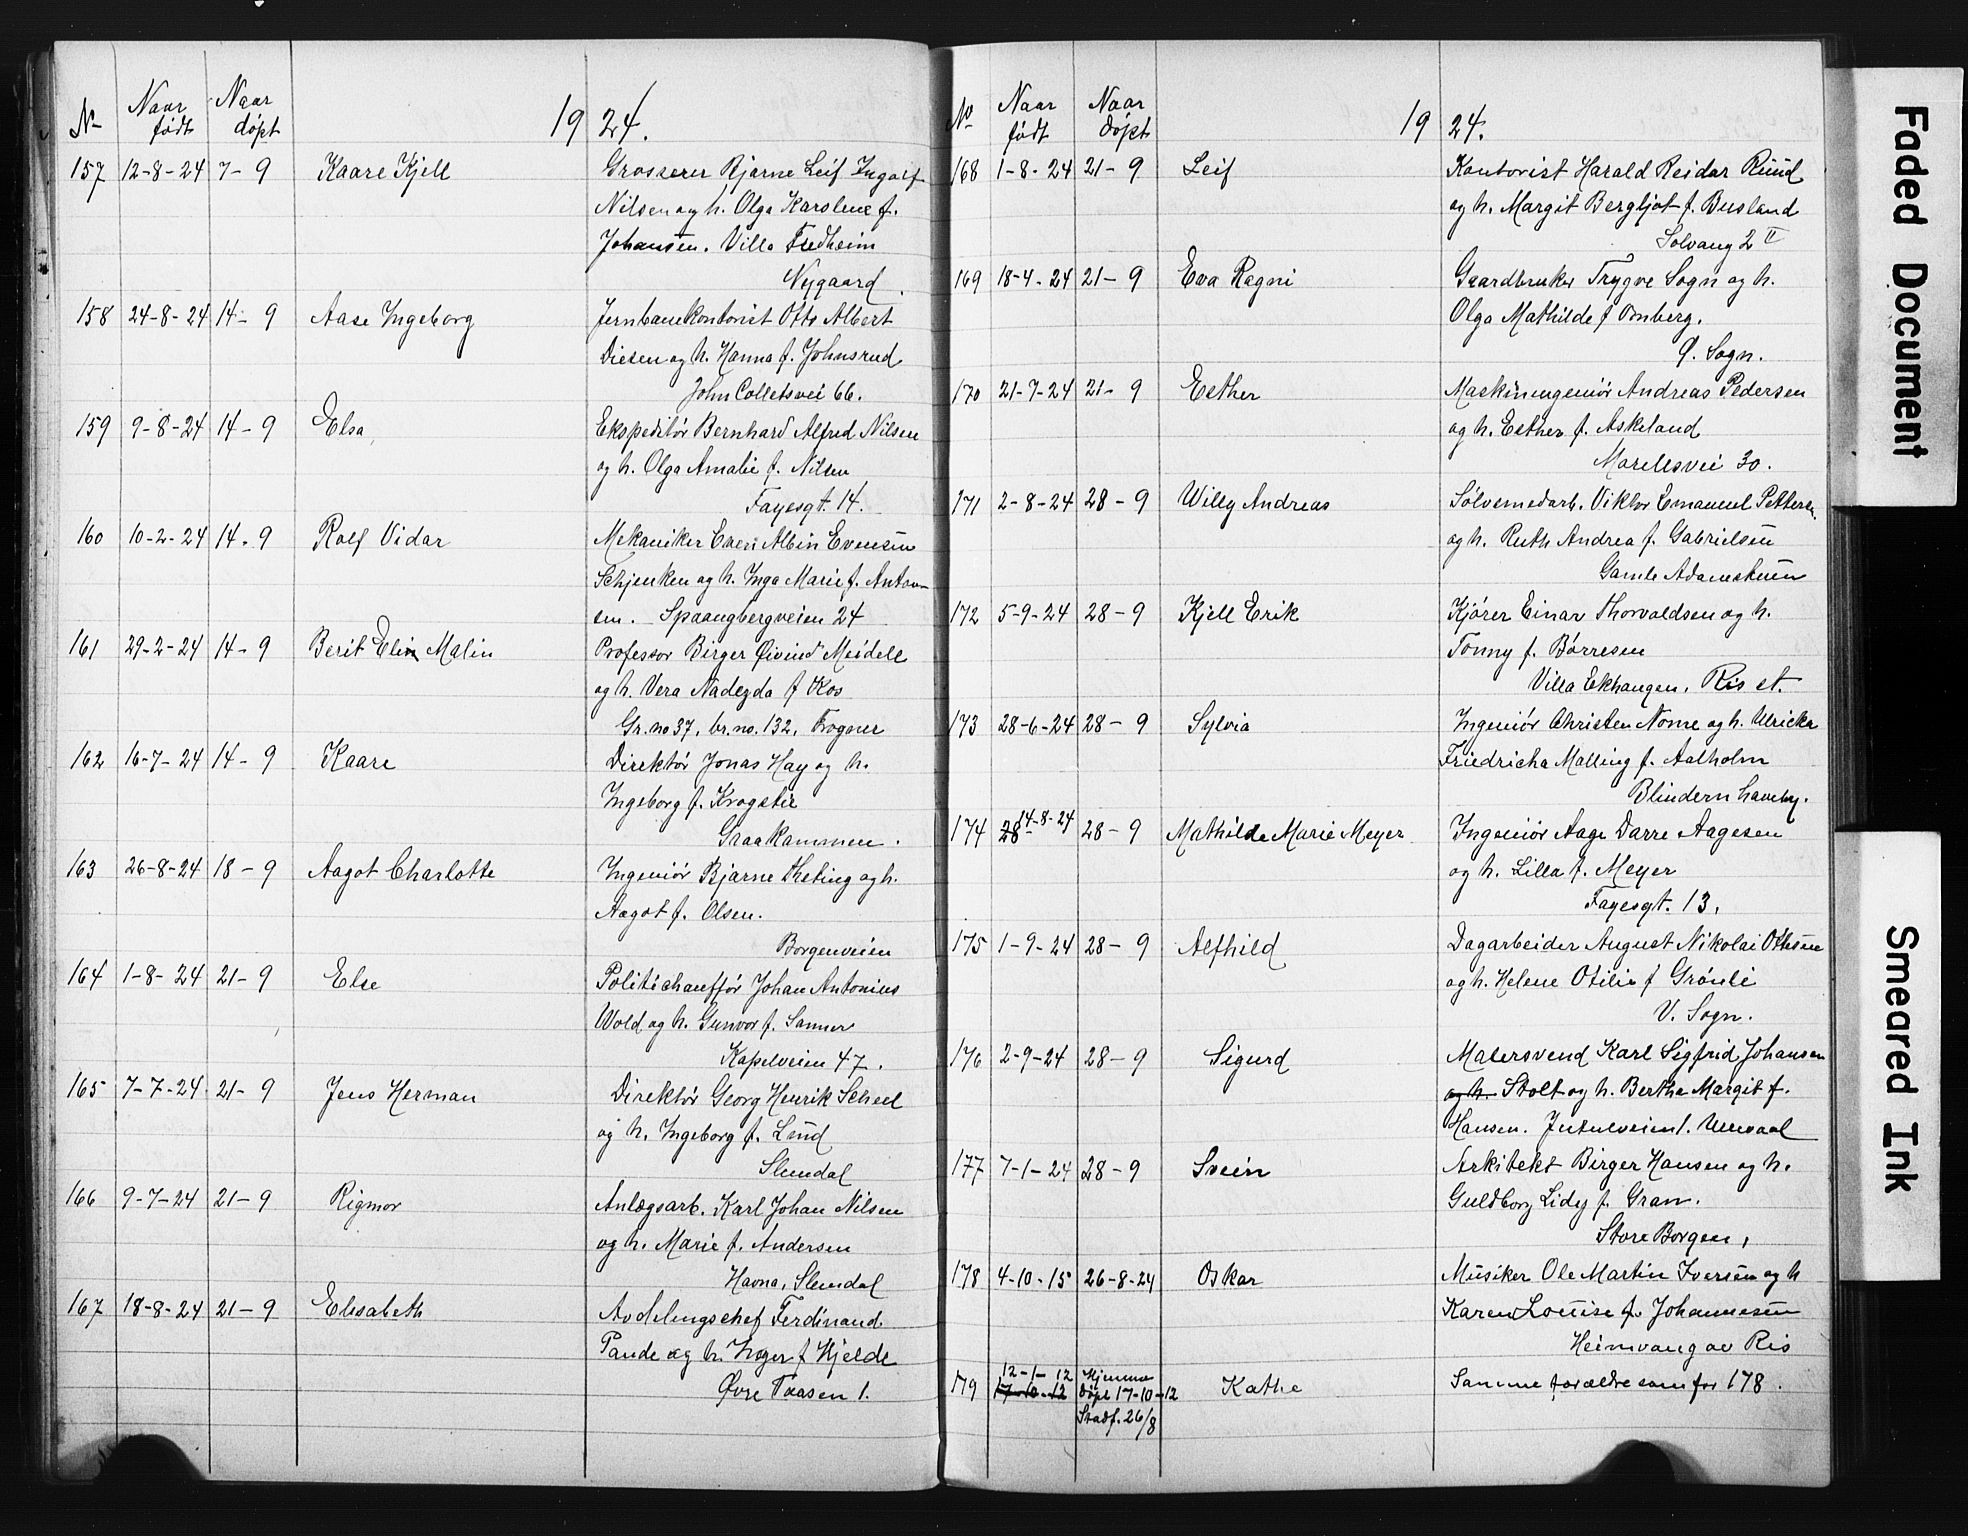 № Naar født Naar döpt 1924.
157 12-8-24 7-9 Kaare Kjell Grosserer Bjarne Leif Ingolf
Nilsen og h. Olga Karoline f.
Johansen. Villa Fredheim
Nygaard.
158 24-8-24 14-9 Aase Ingeborg Jernbanekontorist Otto Albert
Diesen og h. Hanna f. Johnsrud
John Colletsvei 66.
159 9-8-24 14-9 Elsa Ekspeditör Bernhard Alfred Nilsen
og h. Olga Amalie f. Nilsen
Fayesgt. 14.
160 10-2-24 14-9 Rolf Vidar Mekaniker Even Albin Evensen
Schjenken og h. Inga Marie f. Anton-
sen. Spaangbergveien 24
161 29-2-24 14-9 Berit Elin Malin Professor Birger Øivind Meidell
og h. Vera Nadezda f Kos
Gr. no 37, br. no. 132, Frogner
162 16-7-24 14-9 Kaare Direktör Jonas Hay og h.
Ingeborg f. Krogstie
Graakammen.
163 26-8-24 18-9 Aagot Charlotte Ingeniör Bjarne Theting og h.
Aagot f. Olsen.
Borgenveien
164 1-8-24 21-9 Else Politichaufför Johan Antonius
Wold og h. Gunvor f. Sanner
Kapelveien 47.
165 7-7-24 21-9 Jens Herman Direktör Georg Henrik Scheel
og h. Ingeborg f. Lund
Slemdal
166 9-7-24 21-9 Rigmor Anlægsarb. Karl Johan Nilsen
og h. Marie f. Andersen
Havna, Slemdal
167 18-8-24 21-9 Elisabeth Avdelingschef Ferdinand
Pande og h. Inger f Hjelde
Øvre Taasen 1.
№ Naar født Naar döpt 1924.
168 1-8-24 21-9 Leif Kontorist Harald Reidar Ruud
og h. Margit Bergljot f. Busland
Solvang 2 II
169 18-4-24 21-9 Eva Ragni Gaardbruker Trygve Sogn og h.
Olga Mathilde f Omberg.
Ø. Sogn.
170 21-7-24 21-9 Esther Maskiningeniör Andreas Pedersen
og h. Esther f. Askeland
Morellsvei 30.
171 2-8-24 28-9 Willy Andreas Sølvsmedarb. Viktor Emanuel Pettersen
og h. Ruth Andrea f. Gabrielsen
Gamle Adamstuen
172 5-9-24 28-9 Kjell Erik Kjører Einar Thorvaldsen og h.
Tonny f. Børresen
Villa Ekhaugen, Ris st.
173 28-6-24 28-9 Sylvia Ingeniör Christen Nome og h. Ulricka
Friedricha Malling f. Aalholm
Blindern haveby.
174 28 14-8-24 28-9 Mathilde Marie Meyer Ingeniör Aage Darre Aagesen
og h. Lilla f. Meyer
Fayesgt. 13.
175 1-9-24 28-9 Alfhild Dagarbeider August Nikolai Ottesen
og h. Helene Otilie f Grönli
V. Sogn.
176 2-9-24 28-9 Sigurd Malersvend Karl Sigfrid Johansen
og h. Stolt og h. Berthe Margit f.
Hansen. Jutulveien 1. Ullevaal
177 7-1-24 28-9 Svein Arkitekt Birger Hansen og h.
Guldborg Lidy f. Gran.
Store Borgen,
178 4-10-15 26-8-24 Oskar Musiker Ole Martin Iversen og h
Karen Louise f. Johannesen
Heimvang av Ris
179 12-1-12 17-10-12 Hjemme döpt 17-10-12 Stadf. 26/8 Kathe Samme forældre som for 178.
Faded Document
Smeared Ink